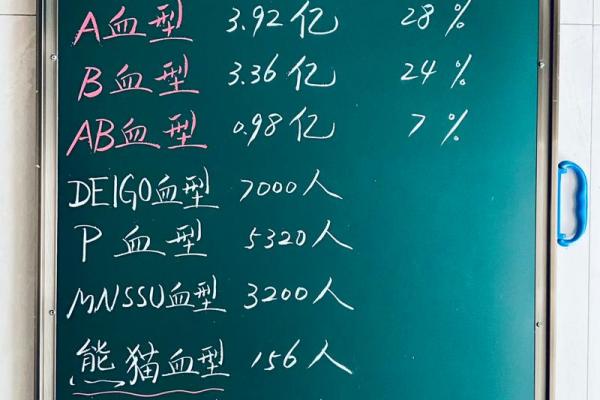 A血型 3.92亿 28%
B血型 3.36亿 24%
AB血型 0.98亿 7%
DEIGO血型 7000人
P血型 5320人
MNSSU血型 3200人
熊猫血型 156人